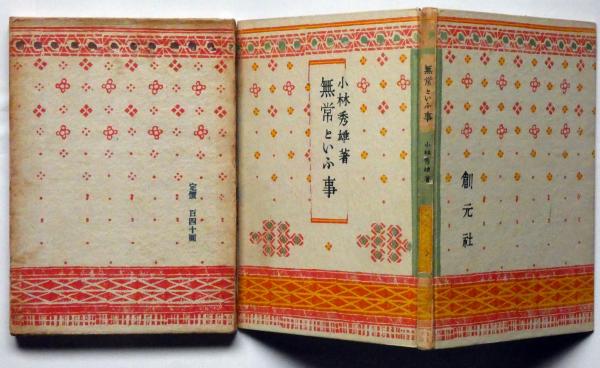 小林秀雄著
無常といふ事
無常といふ事
小林秀雄著
創元社
定價 百四十圓